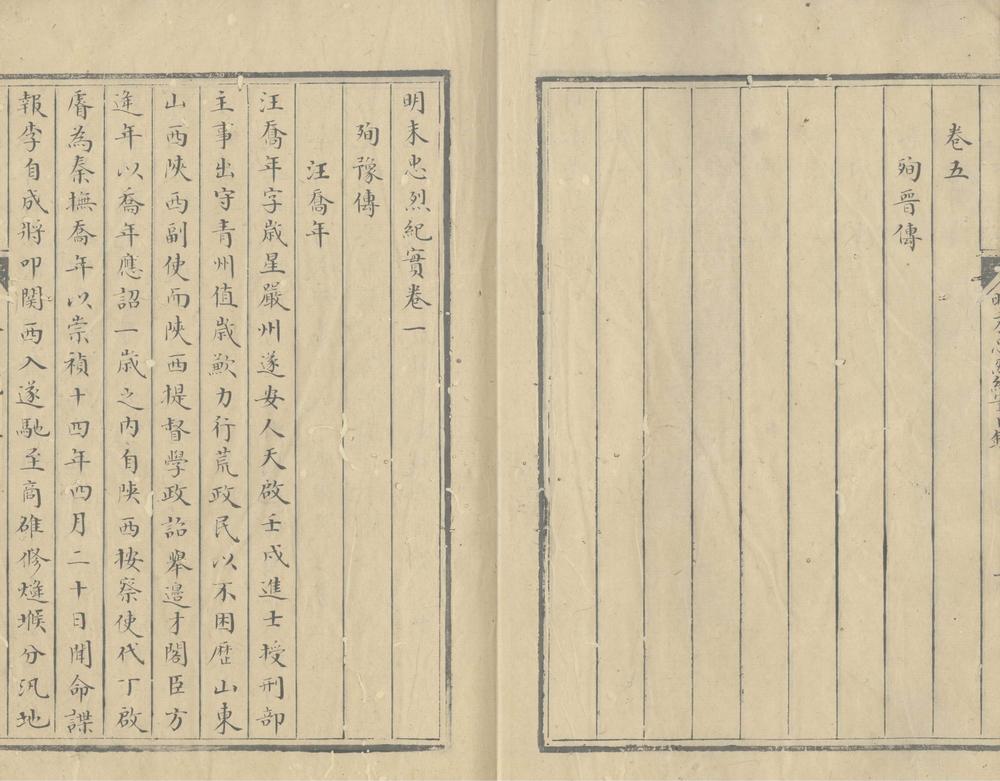 卷五
殉晉傳
明末忠烈紀實卷一
殉豫傳
汪喬年
汪喬年字歲星嚴州遂安人天啟壬戌進士授刑部
主事出守青州值歲歉力行荒政民以不困歷山東
山西陝西副使而陝西提督學政詔舉邊才閣臣方
逢年以喬年應詔一歲之內自陝西按察使代丁啟
睿為秦撫喬年以崇禎十四年四月二十日聞命諜
報李自成將叩関西入遂馳至商雒修燧堠分汛地